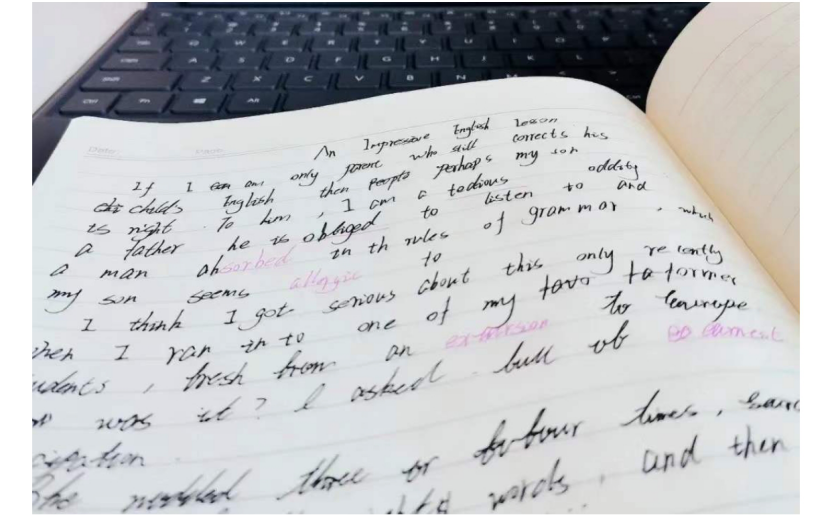 An Impressive English lesson
If I am only parent who still corrects his
child's English then people perhaps my son
is right. To him, I am a tedious oddity
a father he is obliged to listen to and
a man absorbed in th rules of grammar, which
my son seems allergic to
I think I got serious about this only recently
when I ran in to one of my former
udents, fresh from an excursion to Eourope
was it? I asked full of
She nodded three or four times,
words, and then